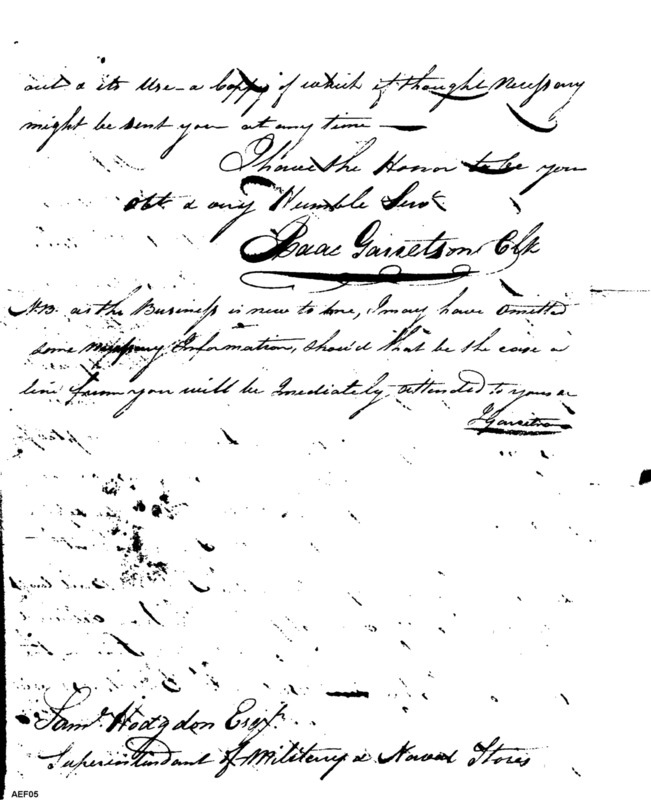 out & its Use - a Coppy of which if thought Necessary
might be sent you at any time —
I have the Honor to be you
obt & very Humble Servt
Isaac Garretson Clk
NB as the Business is new to me, I may have omitted
some necessary Information, shou'd that be the case a
line from you will be Imediately attended to yours &c
I Garretson
Saml. Hodgdon Esqr.
Superintendant of Military & Naval Stores
AEF05